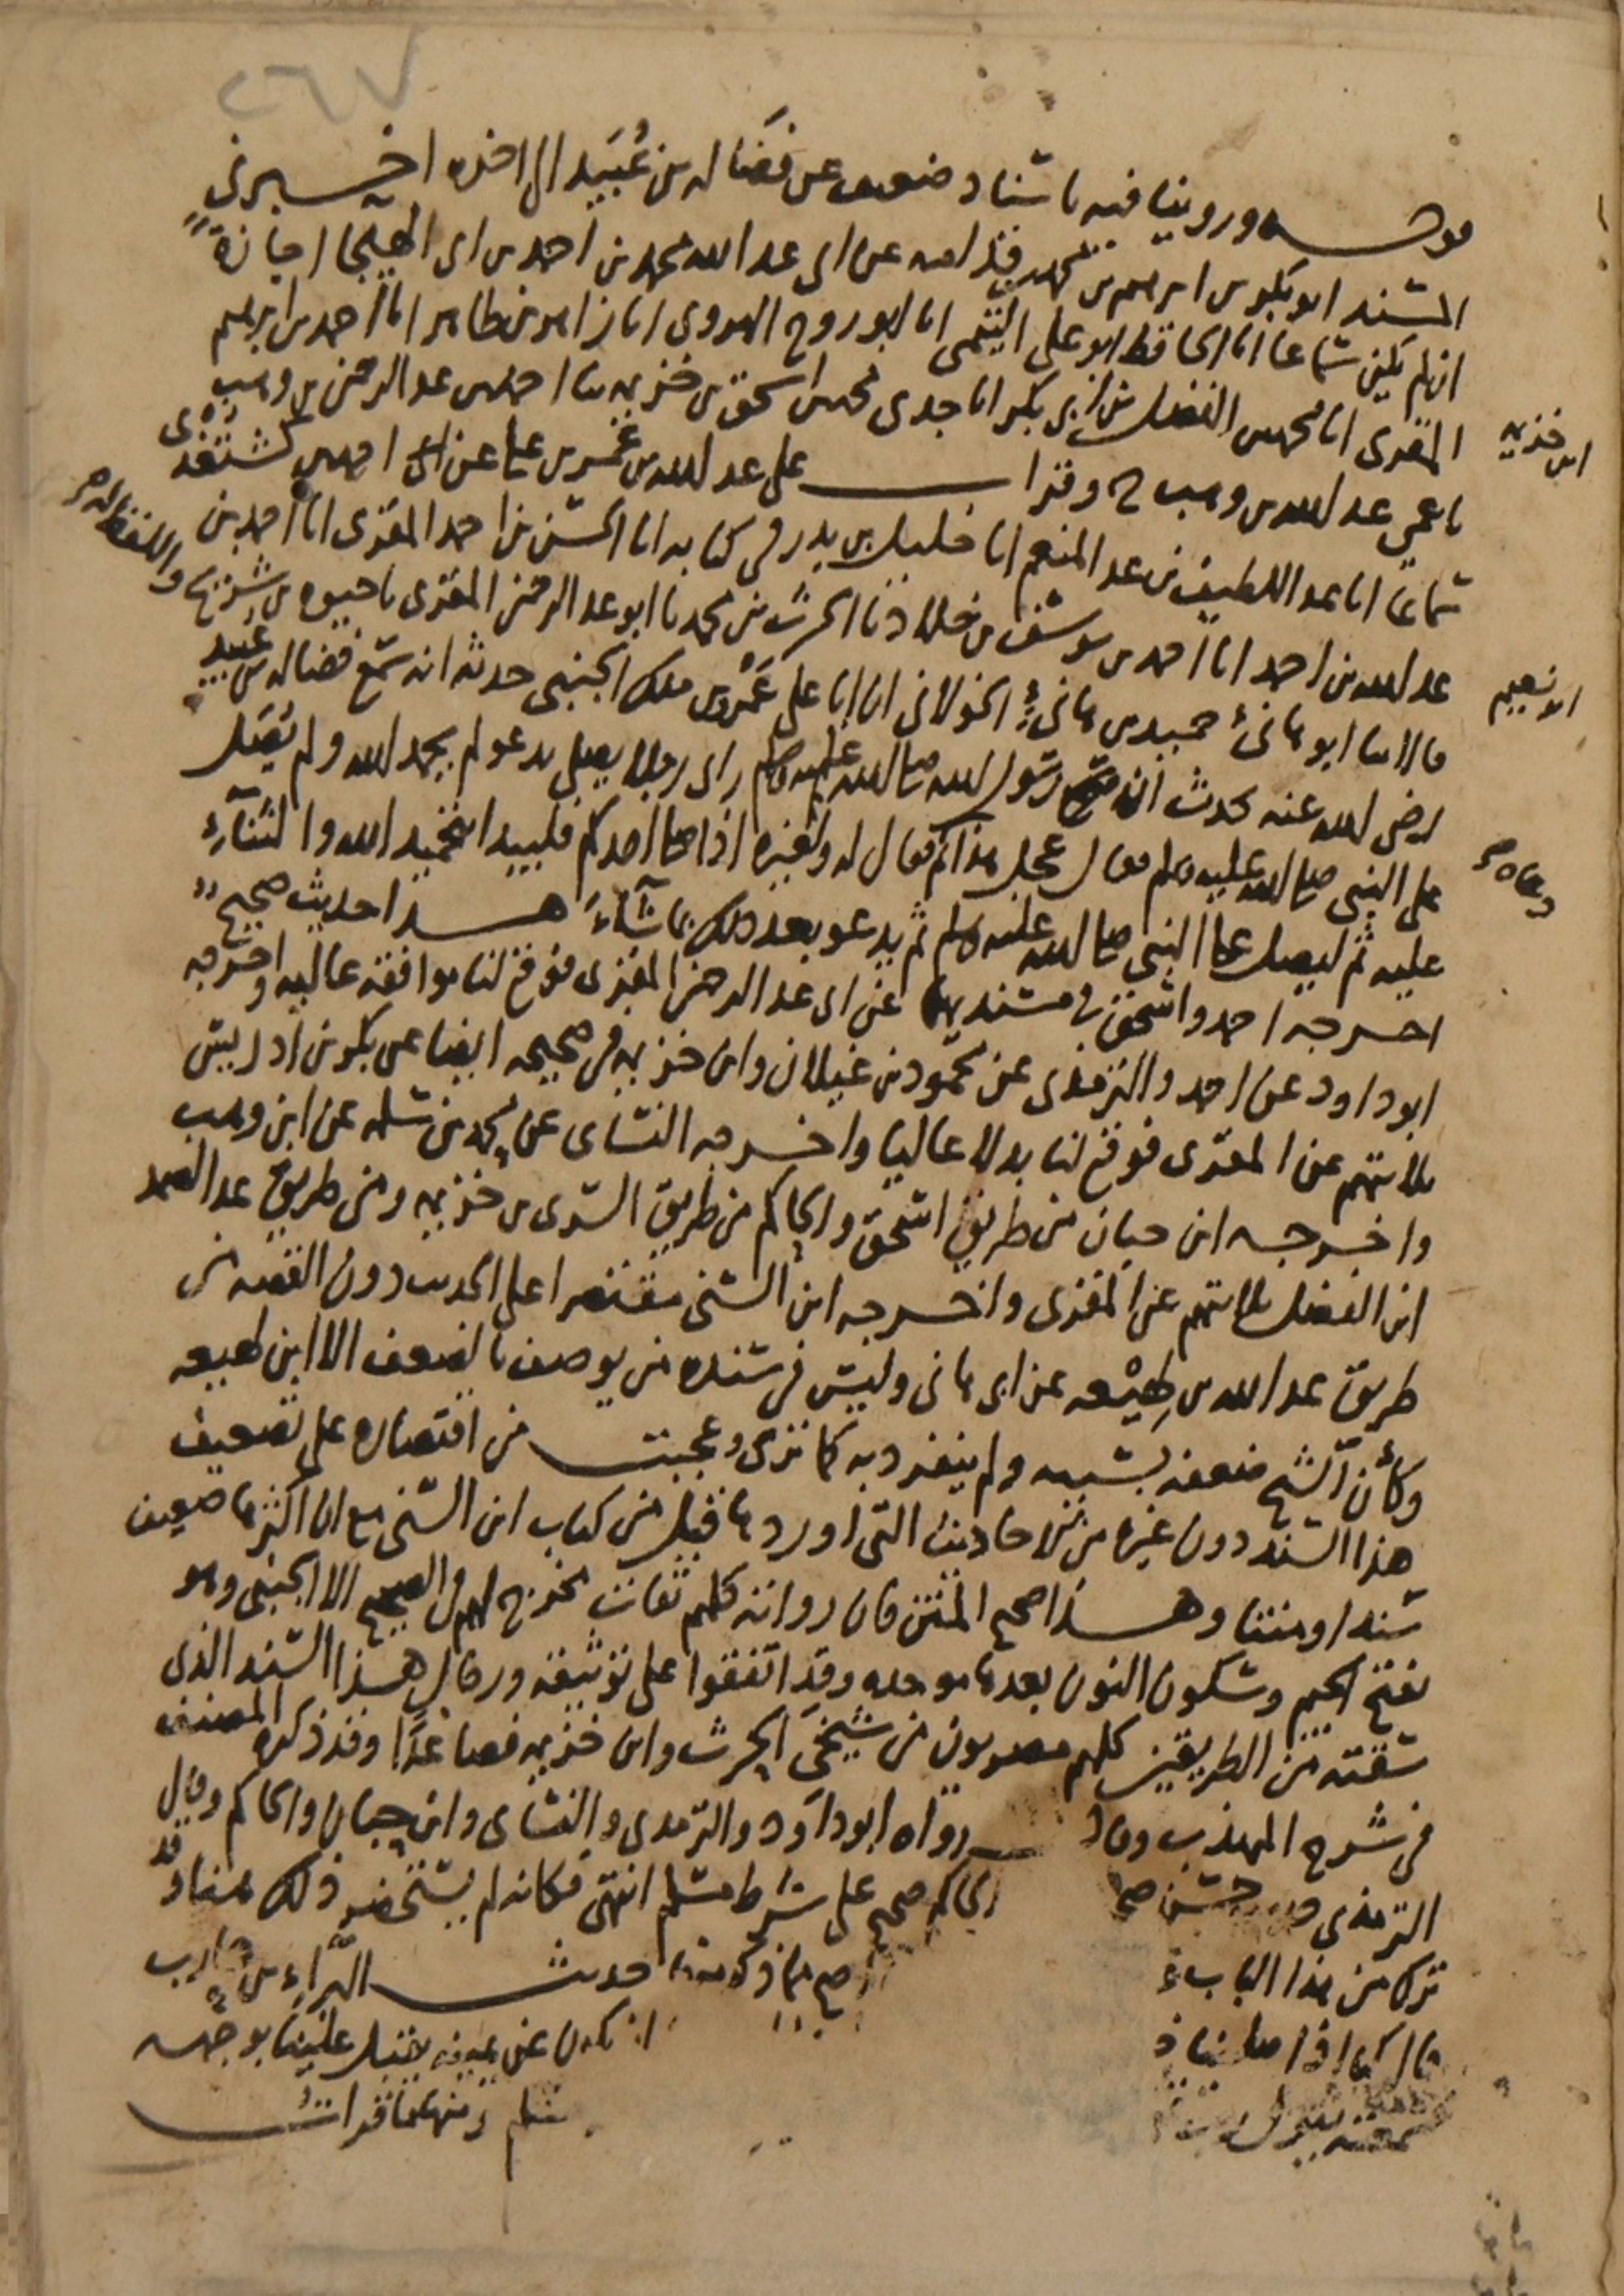 ٢٦٧
قوله وروينا فيه باسناد ضعيف عن فَضَاله بن عُبَيد الى اخره اخبرني
المسند ابو بكر بن ابرهيم بن محمد فيما قرا عليه عن ابى عبد الله محمد بن احمد بن ابى الهيجا اجازةً
ان لم يكن سماعا انا الحافظ ابو على التيمى انا ابو روح الهروى انا زاهر بن طاهر انا احمد بن ابرهيم
المقرى انا محمد بن الفضل بن ابى بكر انا جدى محمد بن اسحق بن خزيمه ثنا احمد بن عبد الرحمن بن وهب
ابن خزيمه
نا عمى عبد الله بن وهب ح وقرات على عبد الله بن عُمر بن على عن احمد بن كشتغدى
سماعا انا عبد اللطيف بن عبد المنعم انا خليل بن بدر فى كتابه انا الحسن بن احمد المقرى انا احمد بن
عبد الله بن احمد انا احمد بن يوسف بن خلاد نا الحرث بن محمد نا ابو عبد الرحمن المقرى نا حيوه بن شريح واللفظ له
ابو نعيم
قالا ثنا ابو هانئ حميد بن هانئ الخولانى ان ابا على عَمْرو بن ملك الجنبى حدثه انه سمع فضاله بن عُبيد
رضى الله عنه يحدث ان رسول الله صلى الله عليه وسلم راى رجلا يصلى يدعو لم يحمد الله ولم يُصَل
على النبى صلى الله عليه وسلم فقال عجل هذا ثم دعاه فقال له ولغيره اذا صلى احدكم فليبدا بتحميد الله والثنآء
عليه ثم ليصل على النبى صلى الله عليه وسلم ثم يدعو بعد ذلك بما شآءَ هذا حديث صحيح
اخرجه احمد واسحق فى مسنديهما عن ابى عبد الرحمن المقرى فوقع لنا موافقه عاليه واخرجه
ابو داود عن احمد والترمذى عن محمود بن غيلان وابن خزيمه فى صحيحه ايضا عن بكر بن ادريس
ثلاثتهم عن المقرى فوقع لنا بدلا عاليا واخرجه النساى عن محمد بن سلمه عن ابن وهب
واخرجه ابن حبان من طريق اسحق والحاكم من طريق السرى بن خزيمه ومن طريق عبد الصمد
ابن الفضل ثلاثتهم عن المقرى واخرجه ابن السنى مقتصرا على الحديث دون القصه من
طريق عبد الله بن لهِيْعه عن ابى هانى وليس فى سنده من يوصف بالضعف الا ابن لهيعه
وكأن الشيخ ضعفه بسببه ولم ينفرد به كما ترى وعجبت من اقتصاره على تضعيف
هذا السند دون غيره من الاحاديث التى اوردها قبل من كتاب ابن السنى مع ان اكثرها ضعيف
سندا ومتنا وهذا صحيح المتن فان رواته كلهم ثقات مخرج لهم فى الصحيح الا الجنبى وهو
بفتح الجيم وسكون النون بعدها موحده وقد اتفقوا على توثيقه ورجال هذا السند الذى
سقته من الطريقين كلهم مصريون من شيخى الحرث وابن خزيمه فصاعدًا وقد ذكره المصنف
فى شرح المهذب وقال رواه ابو داود والترمدى والنساى وابن حبان والحاكم وقال
الترمذى حسن صح الحاكم صحيح على شرط مسلم انتهى فكانه لم يستحضر ذلك هنا وقد
ترك من هذا الباب حديث البَرآءِ بن عازب
قال كنا اذا صلينا ان نكون عن يمينه يقبل علينا بوجهه
سمعته يقول مسلم ومنهما قراتُ